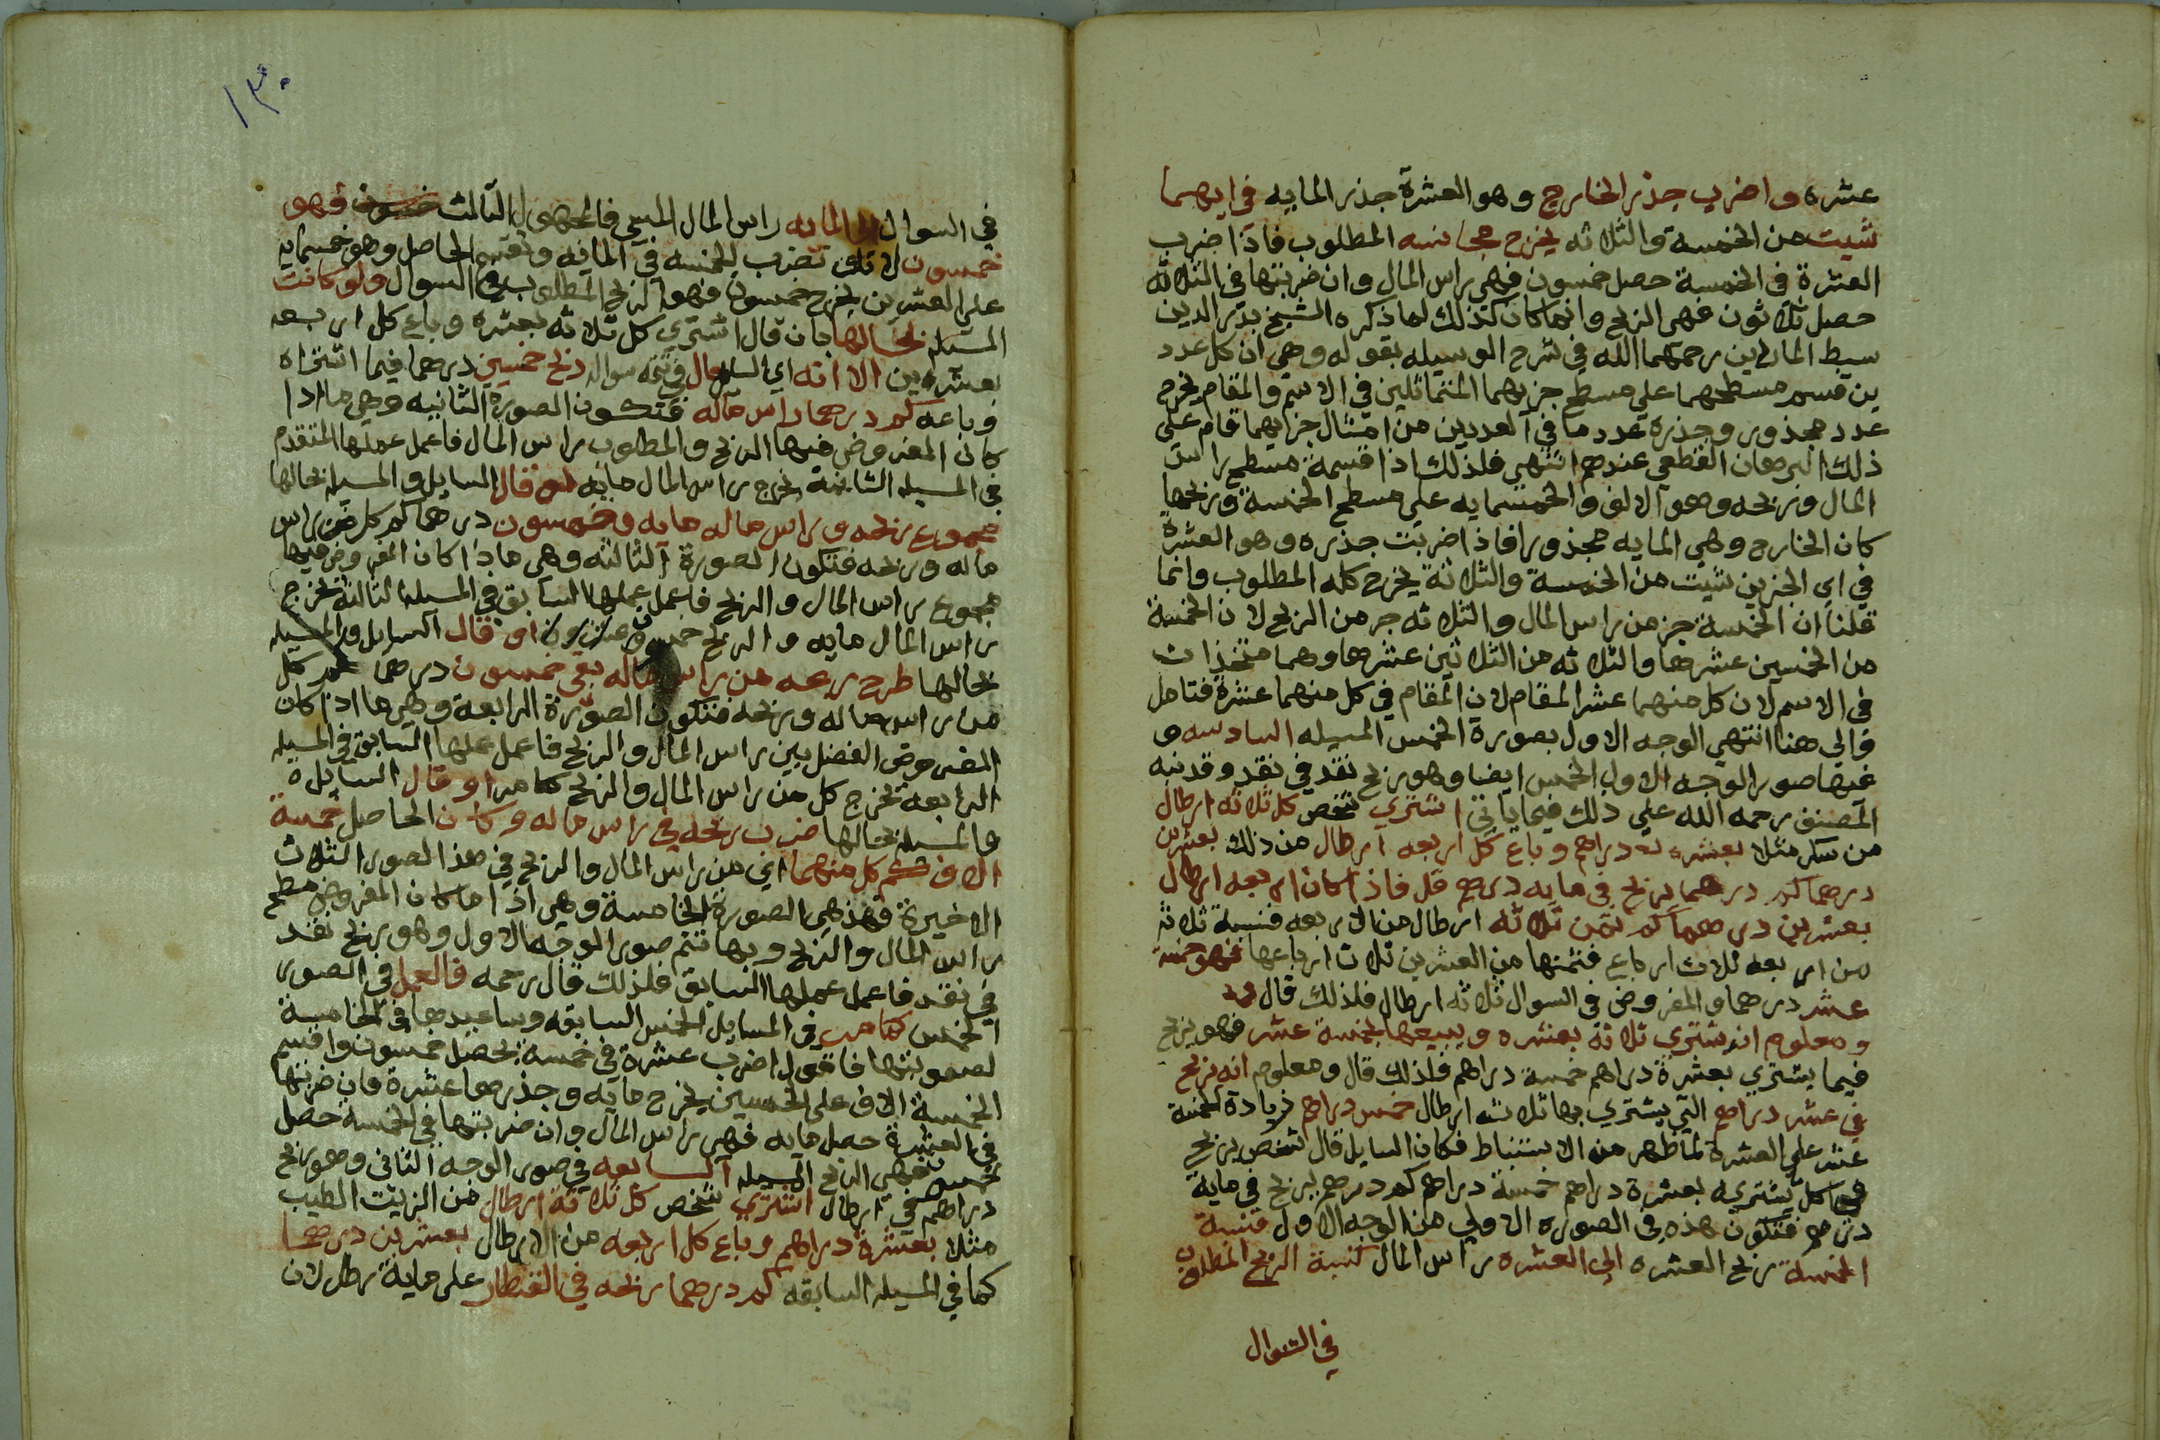 عشره واضرب جذر الخارج وهو العشرة جذر المايه في ايهما
شيت من الخمسة والثلاثه يخرج مجانسه المطلوب فاذا ضرب
العشرة في الخمسة حصل خمسون فهي راس المال وان ضربتها في الثلاثه
حصل ثلاثون فهي الربح وانما كان كذلك لما ذكره الشيخ بدر الدين
سبط المارديني رحمهما الله في شرح الوسيله بقوله وهي ان كل عدد
ين قسم مسطحهما علي مسطح جزيهما المتماثلين في الاسم والمقام يخرج
عدد مجذور وجذره عدد ما في العددين من امثال جزايهما قام علي
ذلك البرهان القطعي عندهم انتهي فلذلك اذا قسمة مسطح راس
المال وربحه وهو الالف والخمسمايه علي مسطح الخمسة وربحها
كان الخارج وهي المايه مجذورا فاذا ضربت جذره وهو العشرة
في اي الجزين شيت من الخمسة والثلاثة يخرج كله المطلوب وانما
قلنا ان الخمسة جز من راس المال والثلاثه جز من الربح لان الخمسة
من الخمسين عشرها والثلاثه من الثلاثين عشرها وهما متحذات
في الاسم لان كل منهما عشر المقام لان المقام في كل منهما عشرة فتامل
والي هنا انتهي الوجه الاول بصورة الخمس المسيله السادسه و
فيها صور الوجه الاول الخمس ايضا وهو ربح نقد في نقد وقد نبه
المصنف رحمه الله علي ذلك فيما ياتي اشتري شخص كل ثلاثه ارطال
من سكر مثلا بعشره دراهم وباع كل اربعه ارطال من ذلك بعشرين
درهما كم درهما يربح في مايه درهم قل فاذا كان اربعه ارطال
بعشرين درهما كم ثمن ثلاثه ارطال من الاربعه فنسبة ثلاثه
من اربعه ثلاث ارباع فثمنها من العشرين ثلاث ارباعها فهو خمسة
عشر درهما والمفروض في السوال ثلاثه ارطال فلذلك قال
ومعلوم انه يشتري ثلاثة بعشره ويبيعها بخمسة عشر فهو يربح
فيما يشتري بعشرة دراهم خمسة دراهم فلذلك قال ومعلوم انه يربح
في عشر دراهم التي يشتري بها ثلاثه ارطال خمس دراهم زيادة الخمسة
عشر علي العشرة لما ظهر من الاستنباط فكان السايل قال شخص يربح
في كل يشتريه بعشرة دراهم خمسة دراهم كم درهم يربح في ماية
درهم فتكون هذه في الصوره الاولي من الوجه الاول فنسبة
الخمسة ربح العشره الي العشره راس المال كنسبة الربح المطلوب
في السوال
١٣٠
في السوال الي المايه راس المال المبيع فالمجهول الثالث فهو
خمسون لانك تضرب الخمسه في المايه وتقسم الحاصل وهو خمسمايه
علي العشرين يخرج خمسون فهو الربح المطلوب في السوال ولو كانت
المسيله بحالها بان قال اشتري كل ثلاثه بعشره وباع كل اربعه
بعشرين الا انه اي السايل قال في تتمة سواله ربح خمسين درهما فيما اشتراه
وباعه كم درهما راس ماله فتكون الصورة الثانيه وهي ما اذا
كان المفروض فيها الربح والمطلوب راس المال فاعمل عملها المتقدم
في المسيله الثانية يخرج راس المال مايه او قال السايل والمسيله بحالها
مجموع ربحه وراس ماله مايه وخمسون درهما كم كل من راس
ماله وربحه فتكون الصورة الثالثه وهي ما اذا كان المفروض فيها
مجموع راس المال والربح فاعمل عملها السابق في المسيله الثالثة يخرج
راس المال مايه والربح خمسون او قال السايل والمسيله
بحالها طرح ربحه من راس ماله بقي خمسون درهما كم كل
من راس ماله وربحه فتكون الصورة الرابعة وهي ما اذا كان
المفروض الفضل بين راس المال والربح فاعمل عملها السابق في المسيله
الرابعة يخرج كل من راس المال والربح كما مر او قال السايل
والمسيله بحالها ضرب ربحه في راس ماله وكان الحاصل خمسة
الاف كم كل منهما اي من راس المال والربح في هذا الصور الثلاث
الاخيرة فهذه هي الصورة الخامسة وهي اذا ما كان المفروض مسطح
راس المال والربح وبها تتم صور الوجه الاول وهو ربح نقد
في نقد فاعمل عملها السابق فلذلك قال رحمه فالعمل في الصور
الخمس كما مر في المسايل الخمس السابقه وساعيدها في الخامسة
لصعوبتها فاقول اضرب عشرة في خمسة يحصل خمسون واقسم
الخمسة الاف علي الخمسين يخرج مايه وجذرها عشرة فان ضربتها
في العشرة حصل مايه فهي راس المال وان ضربتها في الخمسة حصل
خمسون فهي الربح المسيله السابعه في صور الوجه الثاني وهو ربح
دراهم في ارطال اشتري شخص كل ثلاثة ارطال من الزيت الطيب
مثلا بعشرة دراهم وباع كل اربعه من الارطال بعشرين درهما
كما في المسيله السابقه كم درهما ربحه في القنطار علي ماية رطل لان